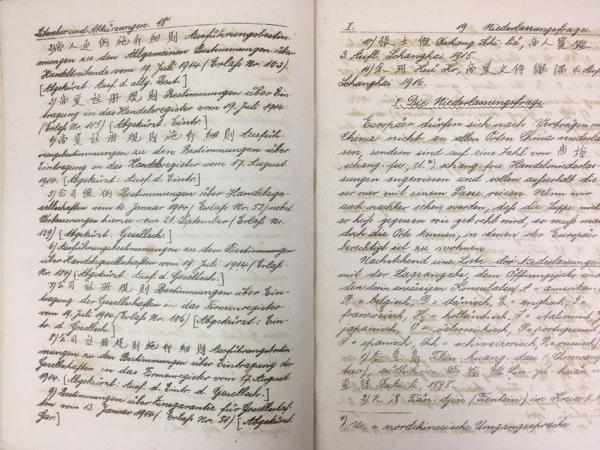 Literatur und Abkürzungen. 18
2) 商人通例施行細則 Ausführungsbestim-
mungen zu den Allgemeinen Bestimmungen über
Handeltreibende vom 19. Juli 1914 (Erlaß No. 103).
[Abgekürzt: Ausf. d. allg. Best.]
3) 商業註冊規則 Bestimmungen über Ein-
tragung in das Handelsregister vom 19. Juli 1914
(Erlaß No. 105) [Abgekürzt: Eintr.]
4) 商業註冊規則施行細則 Ausfüh-
rungsbestimmungen zu den Bestimmungen über
Eintragung in das Handelsregister vom 17. August
1914. [Abgekürzt: Ausf. d. Eintr.]
5) 公司條例 Bestimmungen über Handelsge-
sellschaften vom 13. Januar 1914 (Erlaß Nr. 52) nebst
Verbesserungen hierzu vom 21. September (Erlaß No.
129) [Abgekürzt: Gesellsch.]
6) Ausführungsbestimmungen zu den Bestimmungen
über Handelsgesellschaften vom 19. Juli 1914 (Erlaß
No. 104) [Abgekürzt: Ausf. d. Gesellsch.]
7) 公司註冊規則 Bestimmungen über Ein-
tragung der Gesellschaften in das Firmenregister
vom 19. Juli 1914 (Erlaß No. 106) [Abgekürzt: Ein-
tr. d. Gesellsch.]
8) 公司註冊規則施行細則 Ausführungsbestim-
mungen zu den Bestimmungen über Eintragung der
Gesellschaften in das Firmenregister vom 17. August
1914. [Abgekürzt: Ausf. d. Eintr. d. Gesellsch.]
9) Bestimmungen über Zinsgarantie für Gesellschaf-
ten vom 13. Januar 1914 (Erlaß No. 51) [Abgekürzt:
Gar.]
I. 19 Niederlassungsfrage
張士傑 Dschang Schï-
3. Aufl. Schanghai 1915.
商業文件 6. Auf
Schanghai 1916.
I. Die Niederlassungsfrage
Europäer dürfen sich nach Verträgen m
China nicht an allen Orten Chinas niederlas-
sen, sondern sind auf eine Zahl von 商埠
schang-fu, (U.*) schang-pu Handelsniederlas-
sungen angewiesen und sollen außerhalb die-
ser nur mit einem Passe reisen. Wenn wir
auch nachher sehen werden, daß die Suppe nicht
so heiß gegessen wie gekocht wird, so muß man
doch die Orte kennen, in denen der Europäer
berechtigt ist zu wohnen.
Nachstehend eine Liste der Niederlassungen
mit der Lageangabe, dem Öffnungsjahr und
den darin ansässigen Konsulaten, A = amerikani
B = belgisch, D = dänisch, E = englisch, F =
französisch, H = holländisch, I = italienisch, J
japanisch, Ö = österreichisch, P = portugiesisch,
S = spanisch, Sch = schweizerisch, R = russisch
1) 秦皇島 Tsin-huang-dau (Chinwang-
tao), seitlich von
1898.
2) 天津 Tiän-djin (Tientsin) im Kreise
*) U. = nordchinesische Umgangssprache